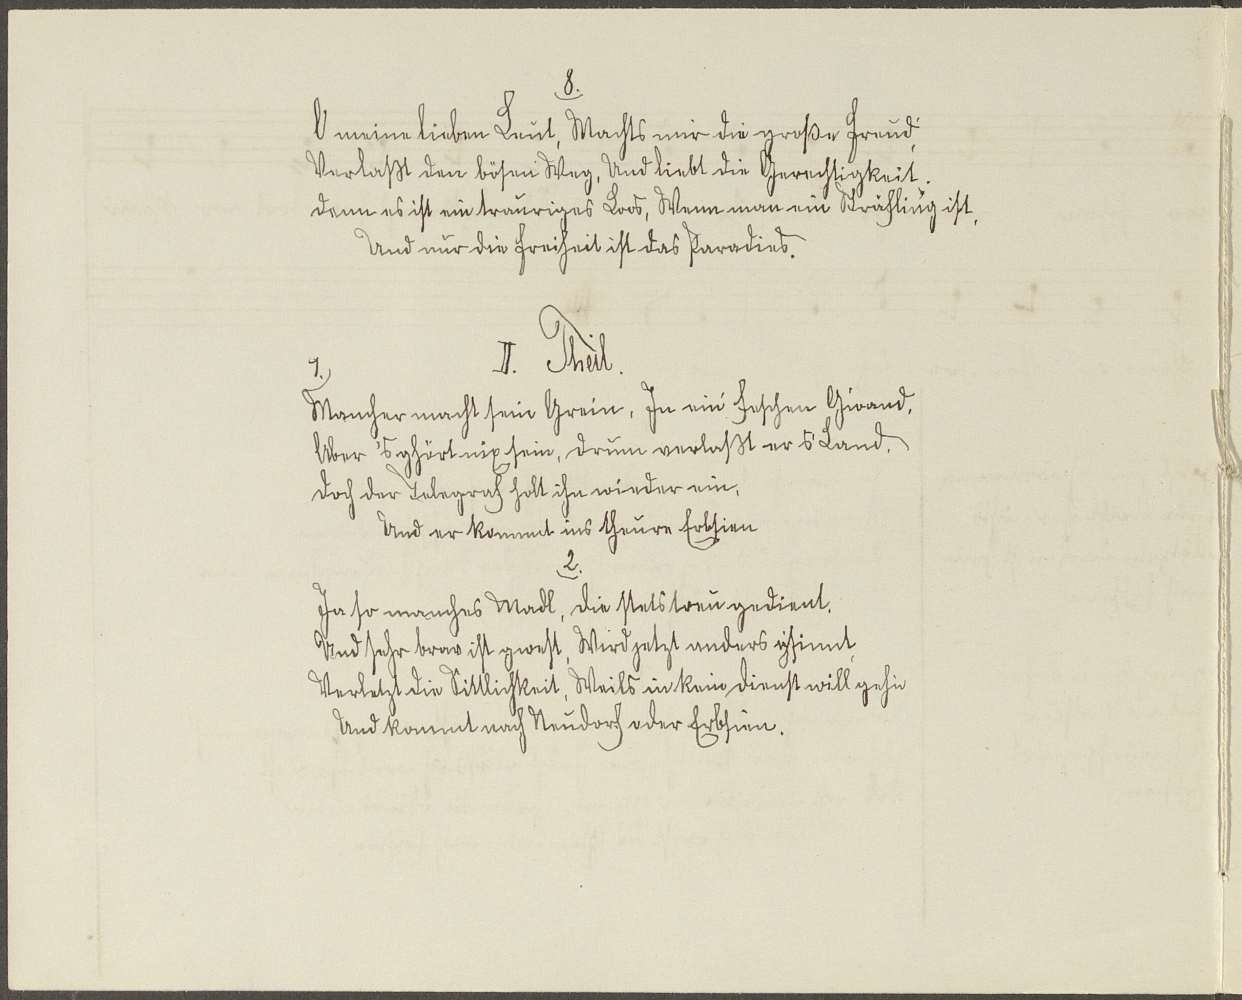 8.
O meine lieben Leut, Machts mir die große Freud',
Verlaßt den bösen Weg, Und liebt die Gerechtigkeit.
denn es ist ein trauriges Loos, Wenn man ein Sträfling ist,
Und nur die Freiheit ist das Paradies.
II. Theil.
1.
Mancher macht sein Grein, In ein feschen Gwand,
Aber 's ghört nix sein, drum verlaßt er s Land,
doch der Telegraf holt ihn wieder ein,
Und er kommt ins theure Erbsien
2.
Ja so manches Madl, die stets treu gedient,
Und sehr brav ist gwest, Wird jetzt anders gsinnt,
Verletzt die Sittlichkeit, Weils in kein dienst will gehn
Und kommt nach Neudorf oder Erbsien.